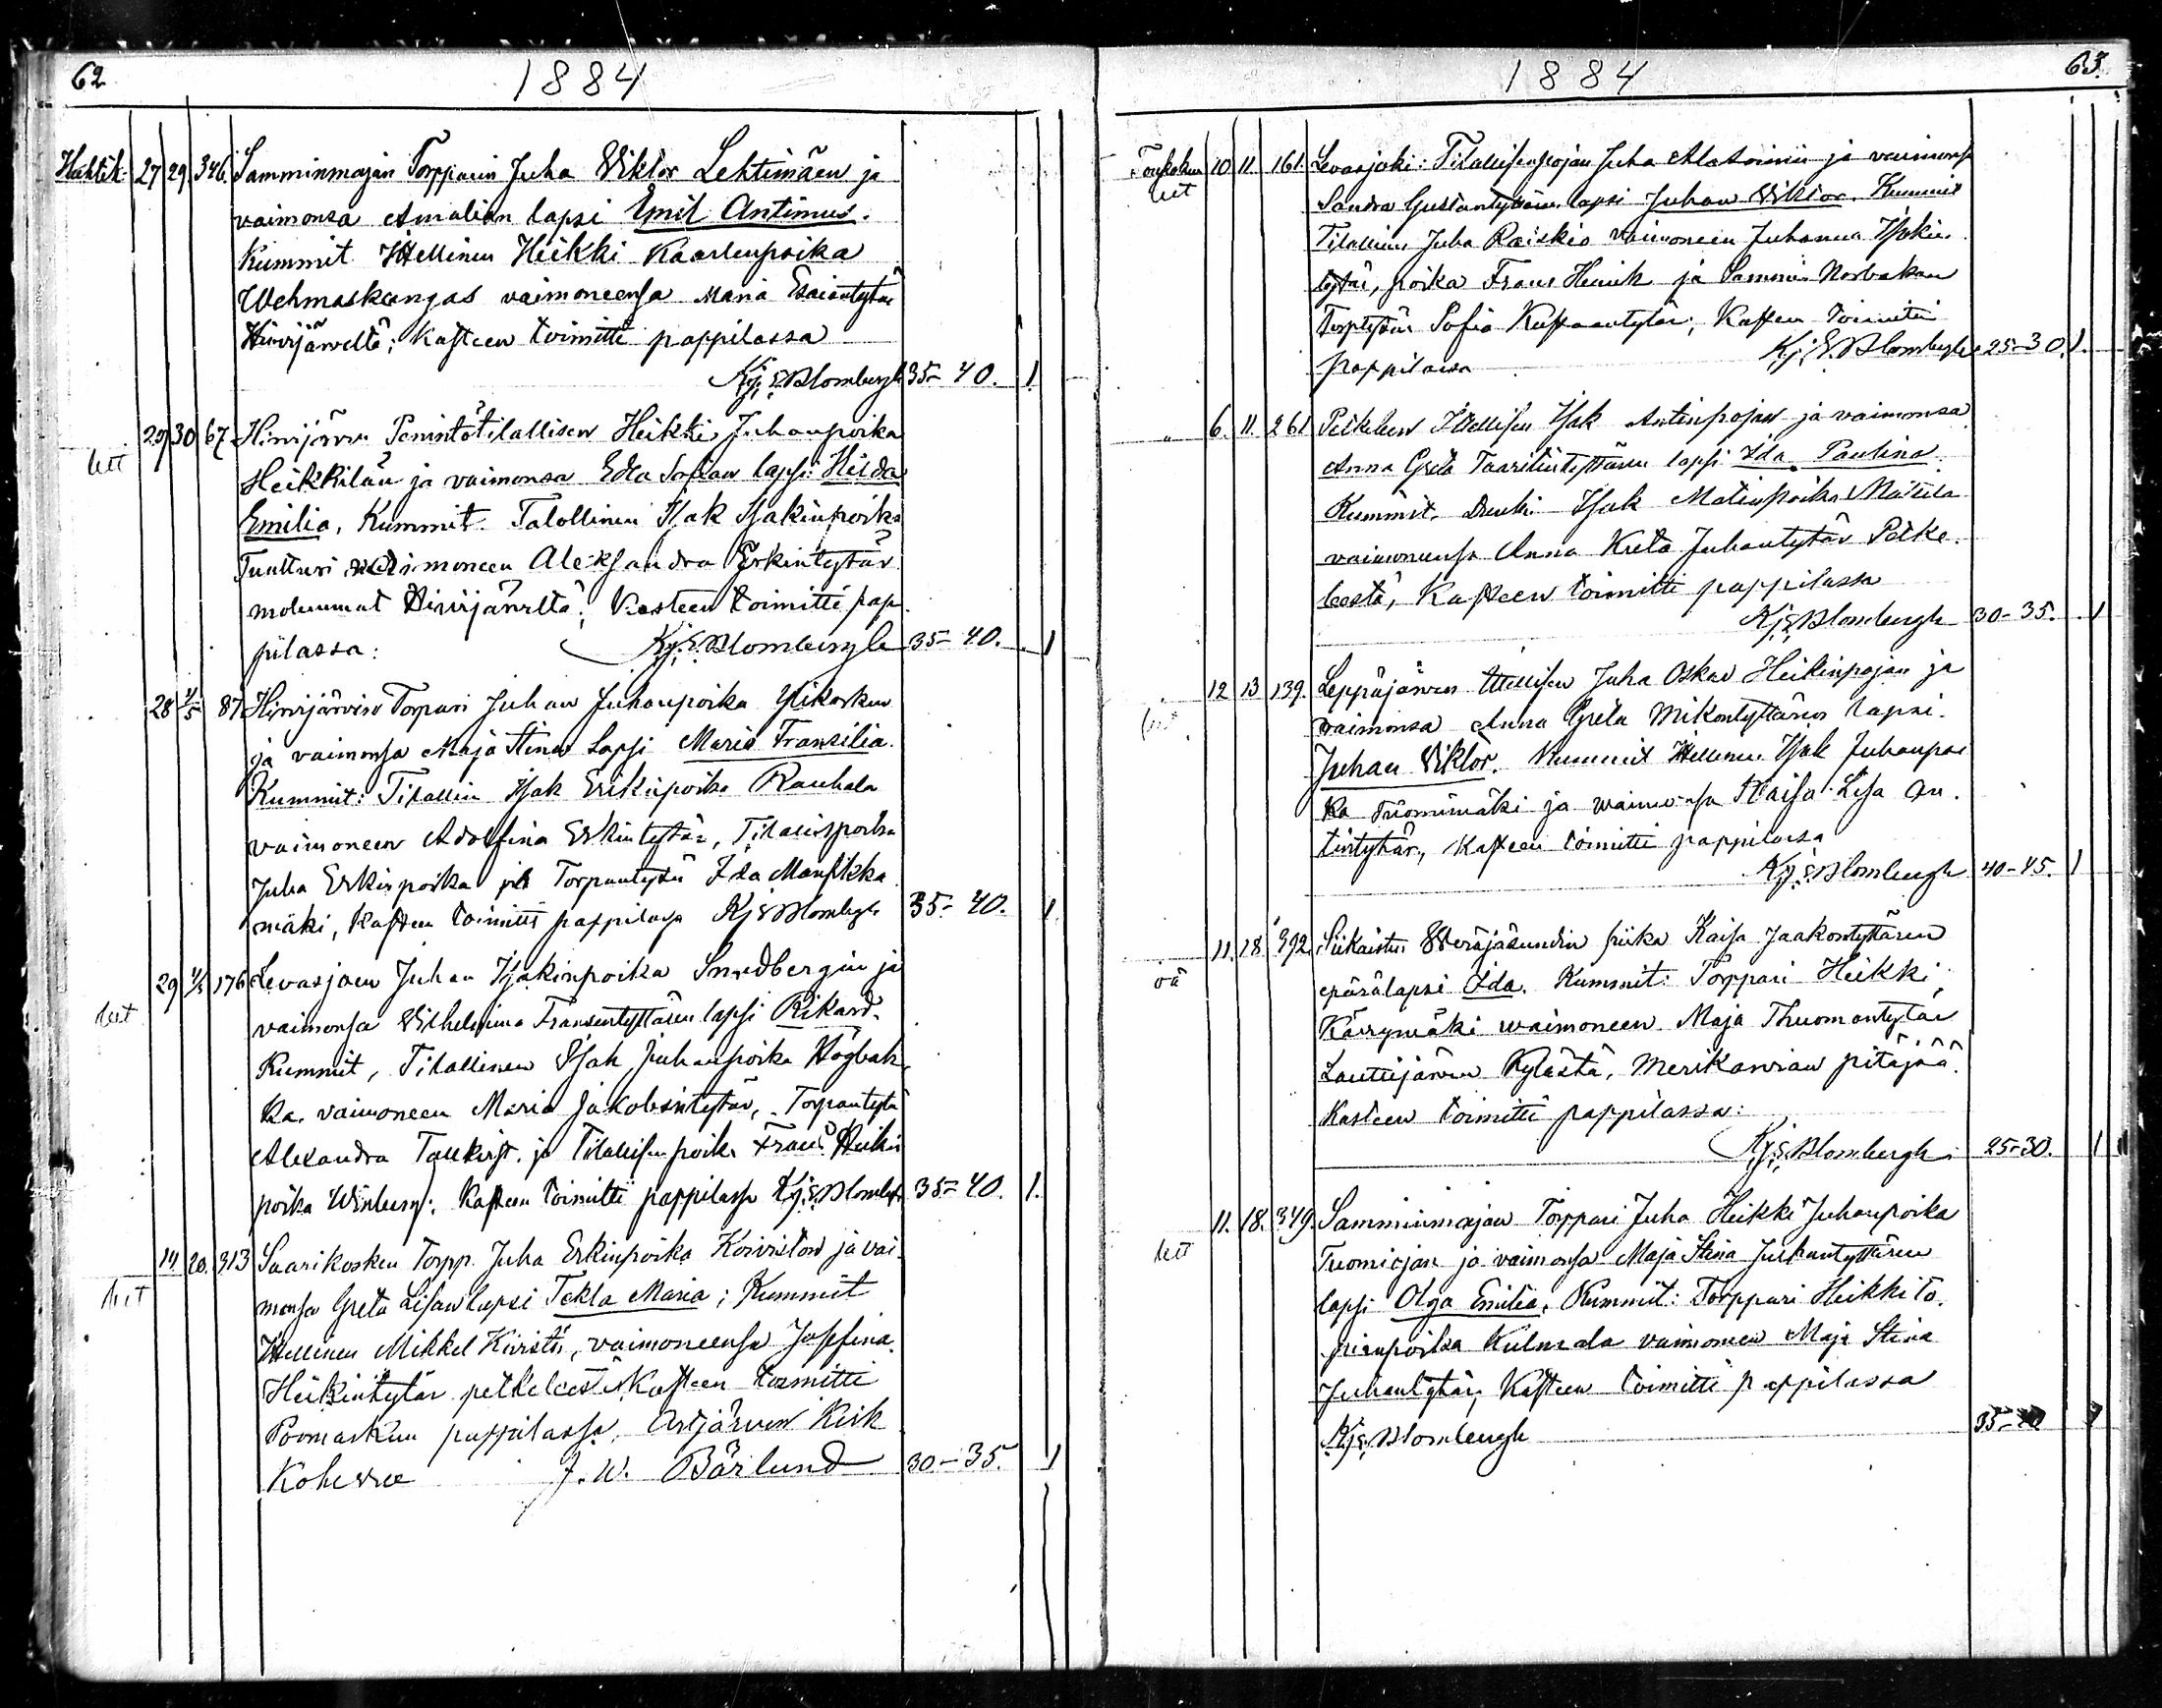 62
1884
Huhtik. 27 29. 346. Samminmajan Torpparin Juha Viktor Lehtimäen ja
vaimonsa Amalian lapsi Emil Antimus.
Kummit Itellinen Heikki Kaarlenpoika
Wehmaskangas vaimoneensa Maria Esaiantytär
Hirvijärveltä; Kasteen toimitti pappilassa
Kj. E. Blombergh 35-40. 1.
29 30 67 Hirvijärven Perintötilallisen Heikki Juhanpoika
Heikkilän ja vaimonsa Edla Sofian lapsi Hilda
Emilia, Kummit. Talollinen Isak Isakinpoika
Tuulturi vaimoneen Aleksandra Erkintytär
molemmat Hirvijärveltä; Kasteen toimitti pap
pilassa: Kj. E. Blombergh 35-40. 1
28 1/5 87 Hirvijärven Torpari Juhan Juhanpoika Ylikosken
ja vaimonsa Maja Stinan Lapsi Maria Fransilia.
Kummit: Tilallin Isak Erikinpoika Rauhala
vaimoneen Adolfina Erkintytär, Tilallispoika
Juha Erkinpoika ja Torpantytär Ida Mansikka
mäki, Kasteen toimitti pappilassa Kj E Blombergh 35-40. 1.
29 1/5 176 Levasjoen Juhan Isakinpoika Sandbergin ja
vaimonsa Vilhelmina Fransentyttären lapsi Rikard.
Kummit, Tilallinen Isak Juhanpoika Högbak
ka vaimoneen Maria Jakobintytär, Torpantytär
Alexandra ja Tilallisenpoika Frans Heikin
poika Winberg; Kasteen toimitti pappilassa Kj. E. Blombergh 35-40. 1.
14 20. 313 Saarikosken Torpp. Juha Erkinpoika Koiviston ja vai
monsa Greta Lisan lapsi Tekla Maria; Kummit
Itellinen Mikkel Kivistö, vaimoneensa Josefina
Heikintytär Kasteen toimitti
Poomarkun pappilassa. Artjärven Kirk
Koherra J. W. Bärlund 30-35. 1
1884
63.
Toukokuu 10 11. 161. Levasjoki: Tilallisenpojan Juha ja vaimonsa
Sandra Gustantyttären lapsi Juhan Viktor. Kummit
Tilallinen Juha Raiskio vaimoneen Juhanna Isakin
tytär, poika Frans Henrik ja Sammin Norbakan
Torptytär Sofia Kustaantytär; Kasteen toimitti
pappilassa Kj. E. Blombergh 25-30. 1.
6. 11. 261 Pelkeleen Itellisen Isak Antinpojan ja vaimonsa
Anna Greta Taavetintyttären lapsi Ida Paulina.
Kummit. Isak Matinpoika Mattila
vaimoneensa Anna Kreta Juhantytär Pelke
leestä, Kasteen toimitti pappilassa
Kj E Blombergh 30-35. 1
12 13 139. Leppäjärven Itellisen Juha Oskar Heikinpojan ja
vaimonsa Anna Greta Mikontyttären lapsi.
Juhan Viktor. Kummit Itellinen Isak Juhanpoi
ka Tuomimäki ja vaimonsa Kaisa Lisa An
tintytär, Kasteen toimitti pappilassa
Kj. E. Blombergh 40-45. 1
11. 18 392. Siikaisten Weräjäsundin piika Kaisa Jaakontyttären
epäsälapsi Ida. Kummit: Torppari Heikki
Kärrymäki waimoneen Maja Thuomantytär
Lauttijärven Kylästä, Merikarvian pitäjää.
Kasteen toimitti pappilassa:
Kj. E. Blombergh 25-30. 1
11. 18. 349. Samminmajan Torppari Juha Heikki Juhanpoika
Tuomiojan ja vaimonsa Maja Stina Juhantyttären
lapsi Olga Emilia. Kummit: Torppari Heikki To
piaspoika Kulmala vaimoneen Maja Stina
Juhantytär, Kasteen toimitti pappilassa
Kj E. Blombergh 35-40